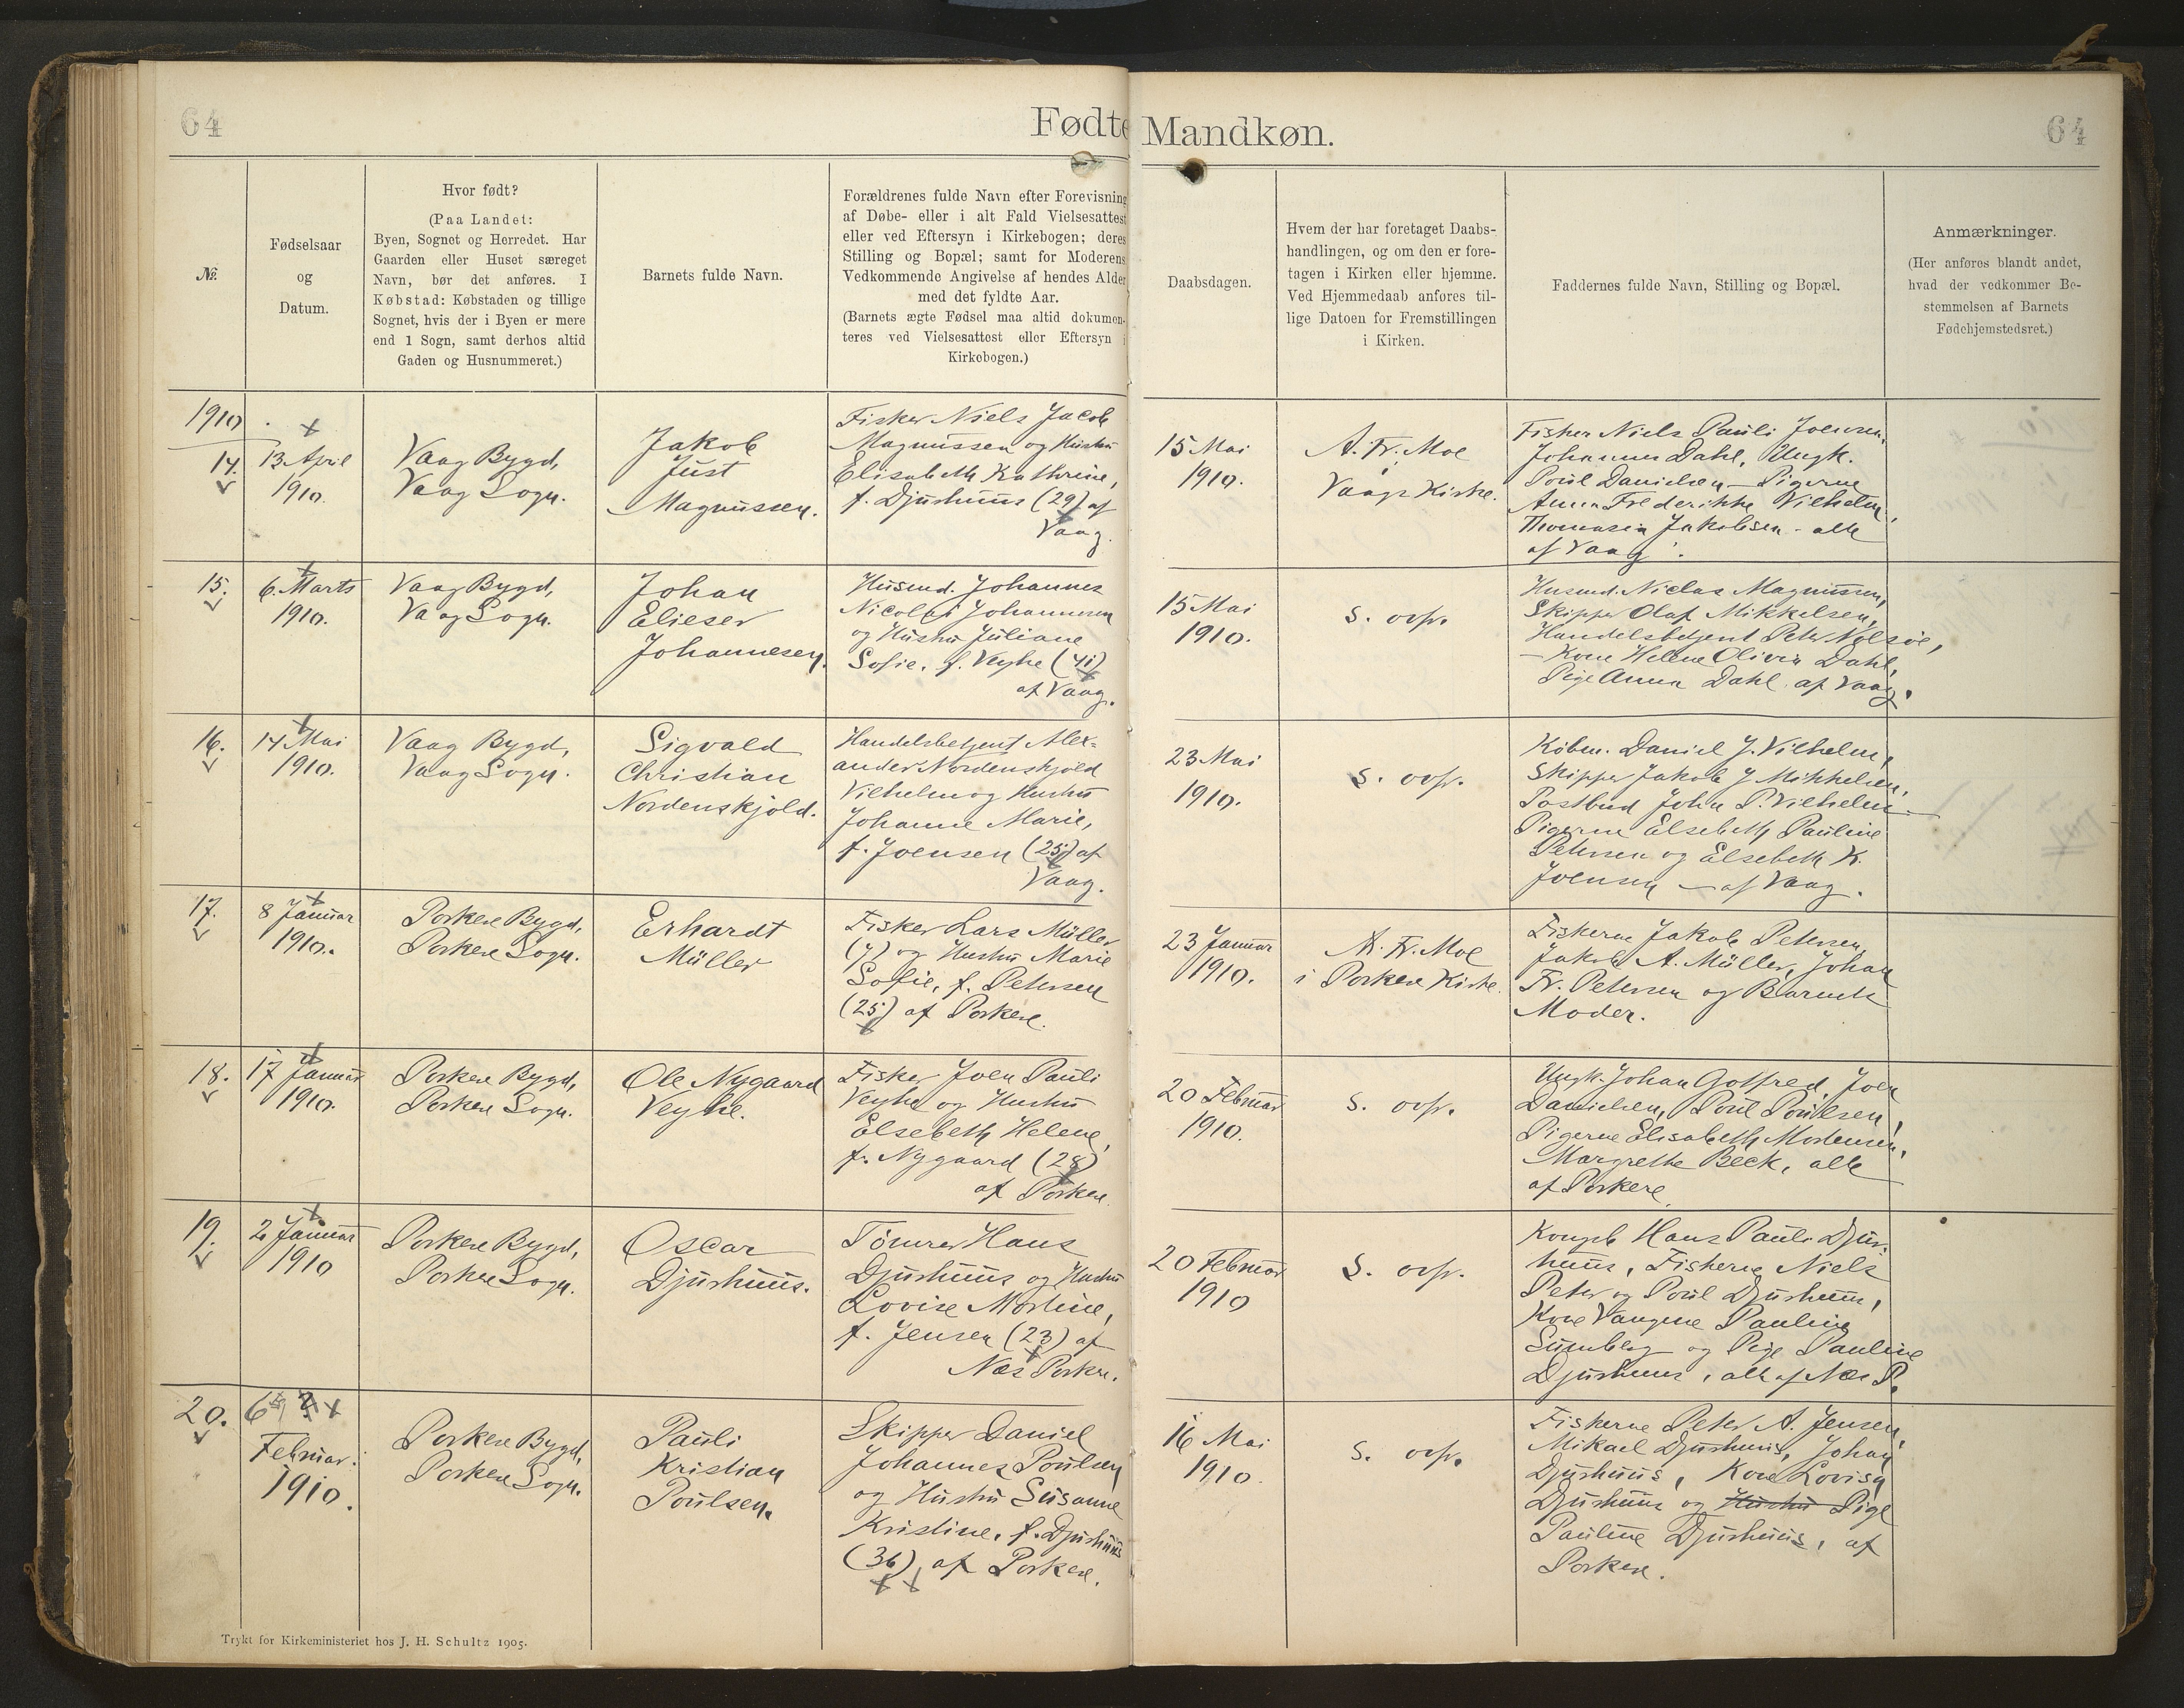 64
Fødte Mandkøn.
64
№
Fødselsaar
og
Datum.
Hvor født?
(Paa Landet:
Byen, Sognet og Herredet. Har
Gaarden eller Huset særeget
Navn, bør det anføres. I
Købstad: Købstaden og tillige
Sognet, hvis der i Byen er mere
end 1 Sogn, samt derhos altid
Gaden og Husnummeret.)
Barnets fulde Navn.
Forældrenes fulde Navn efter Forevisning
af Døbe- eller i alt Fald Vielsesattest
eller ved Eftersyn i Kirkebogen; deres
Stilling og Bopæl; samt for Moderens
Vedkommende Angivelse af hendes Alder
med det fyldte Aar.
(Barnets ægte Fødsel maa altid dokumen-
teres ved Vielsesattest eller Eftersyn i
Kirkebogen.)
Daabsdagen.
Hvem der har foretaget Daabs-
handlingen, og om den er fore-
tagen i Kirken eller hjemme.
Ved Hjemmedaab anføres til-
lige Datoen for Fremstillingen
i Kirken.
Faddernes fulde Navn, Stilling og Bopæl.
Anmærkninger.
(Her anføres blandt andet,
hvad der vedkommer Be-
stemmelsen af Barnets
Fødehjemstedsret.)
1910
14.
13 April
1910.
Vaag Bygd,
Vaag Sogn.
Jakob
Just
Magnussen.
Fisker Niels Jacob
Magnussen og Hustru
Elisabeth Kathrine,
f. Djurhuus (29) af
Vaag.
15 Mai
1910.
A. Fr. Moe
i
Vaags Kirke.
Fisker Niels Pauli Joensen,
Johannes Dahl, Ungk.
Poul Danielsen – Pigerne
Anna Frederikke Vilhelm,
Thomasia Jakobsen – alle
af Vaag.
15.
6. Marts
1910.
Vaag Bygd,
Vaag Sogn.
Johan
Elieser
Johannesen.
Husmd. Johannes
Nicolaj Johannesen
og Hustru Juliane
Sofie, f. Veyhe (41)
af Vaag.
15 Mai
1910.
s. ovf.
Husmd. Niclas Magnussen,
Skipper Olaf Mikkelsen,
Handelsbetjent Peter Nolsøe,
– Kone Helene Olivia Dahl,
Pige Anna Dahl af Vaag.
16.
14 Mai
1910.
Vaag Bygd,
Vaag Sogn.
Sigvald
Christian
Nordenskjold.
Handelsbetjent Alex=
ander Nordenskjold
Vilhelm og Hustru
Johanne Marie,
f. Joensen (25) af
Vaag.
23 Mai
1910.
s. ovf.
Købm. Daniel J. Vilhelm,
Skipper Jakob J Mikkelsen,
Postbud John P. Vilhelm –
Pigerne Elsebeth Pauline
Petersen og Elsebeth K.
Joensen – af Vaag.
17.
8 Januar
1910.
Porkere Bygd,
Porkere Sogn.
Erhardt
Müller
Fisker Lars Müller
og Hustru Marie
Sofie, f. Petersen
(25) af Porkere.
23 Januar
1910.
A. Fr. Moe
i Porkere Kirke.
Fiskerne Jakob Petersen,
Jakob A. Müller, Johan
Fr. Petersen og Barnets
Moder.
18.
17 Januar
1910.
Porkere Bygd,
Porkere Sogn.
Ole Nygaard
Veyhe.
Fisker Joen Pauli
Veyhe og Hustru
Elsebeth Helene,
f. Nygaard (28)
af Porkere.
20 Februar
1910.
s. ovf.
Ungk. Johan Gotfred, Joen
Danielsen, Poul Poulsen,
Pigerne Elisabeth Mortensen,
Margrethe Beck, alle
af Porkere.
19.
2. Januar
1910
Porkere Bygd,
Porkere Sogn.
Oscar
Djurhuus.
Tømrer Hans
Djurhuus og Hustru
Lovise Mortine,
f. Jensen (23) af
Næs Porkere.
20 Februar
1910
s. ovf.
Kongsb Hans Pauli Djur-
huus, Fiskerne Niels
Peter og Poul Djurhuus,
Kone Pauline
Sumberg og Pige Pauline
Djurhuus, alle af Næs P.
20.
Februar.
1910.
Porkere Bygd,
Porkere Sogn.
Pauli
Kristian
Poulsen.
Skipper Daniel
Johannes Poulsen
og Hustru Susanne
Kristine, f. Djurhuus
(36), af Porkere.
16 Mai
1910.
s. ovf.
Fiskerne Peter A. Jensen,
Mikael Djurhuus, Johan
Djurhuus, Kone Lovisa
Djurhuus og Hustru Pige
Pauline Djurhuus, af
Porkere.
Trykt for Kirkeministeriet hos J. H. Schultz 1905.